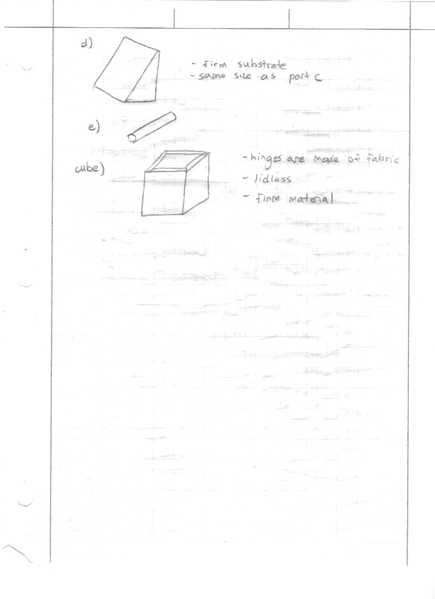 d)
- firm substrate
- same size as part c
e)
cube)
- hinges are made of fabric
- lidless
- firm material